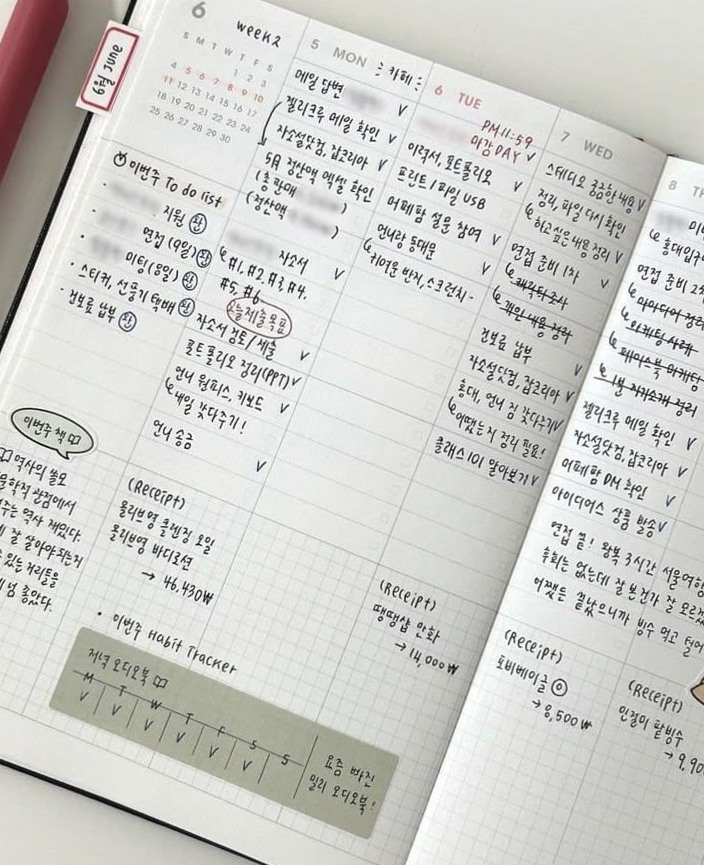 6월 June
6
week2
S M T W T F S
1 2 3
4 5 6 7 8 9 10
11 12 13 14 15 16 17
18 19 20 21 22 23 24
25 26 27 28 29 30
이번주 To do list
지원 완
면접 (9일) 완
미팅 (8일) 완
스티커, 선풍기 택배 완
건보료 납부 완
이번주 책
역사의 쓸모
주는 역사 재밌다.
잘 살아야 되는지
있는 자리들을
넘 좋았다.
5 MON
카페
메일 답변 ✓
젤리크루 메일 확인 ✓
자소설닷컴, 잡코리아 ✓
5月 정산액 엑셀 확인
(총 판매
)
(정산액
)
자소서 ✓
↳ #1, #2, #3, #4,
#5, #6
오늘 제출 목요
자소서 검토/제출 ✓
포트폴리오 정리(PPT) ✓
언니 원피스, 키보드 ✓
↳ 내일 갖다주기!
언니 송금 ✓
(Receipt)
올리브영 클렌징 오일
올리브영 바디로션
→ 46,430₩
• 이번주 Habit Tracker
저녁 오디오북
M T W T F S S
✓ ✓ ✓ ✓ ✓ ✓
요즘 빠진
밀리 오디오북!
6 TUE
PM 11:59
마감 DAY ✓
이력서, 포트폴리오 ✓
프린트 / 파일 USB
어페팜 설문 참여 ✓
언니랑 동대문 ✓
↳ 귀여운 반지, 스크런치~
(Receipt)
땡땡샵 안화
→ 14,000₩
7 WED
스테디오 궁금한 내용 ✓
정리, 파일 다시 확인
↳ 하고싶은 내용 정리 ✓
면접 준비 1차 ✓
↳ 캐릭터 조사
↳ 개인 내용 정리
건보료 납부 ✓
자소설닷컴, 잡코리아 ✓
홍대, 언니 짐 갖다주기 ✓
↳ 어땠는지 정리 필요!
클래스101 알아보기 ✓
(Receipt)
포비베이글
→ 8,500₩
8 TH
↳ 홍대입구
면접 준비 2차
↳ 아이디어 정리
↳ 마케팅 사례
↳ 페이스북 마케팅
↳ 1분 자기소개 정리
젤리크루 메일 확인 ✓
자소설닷컴, 잡코리아 ✓
어페팜 DM 확인 ✓
아이디어스 상품 발송 ✓
면접 끝! 왕복 3시간 서울여행
후회는 없는데 잘 본건가 잘 모르겠
어쨌든 끝났으니까 빙수 먹고 털어
(Receipt)
인절미 팥빙수
→ 9,90